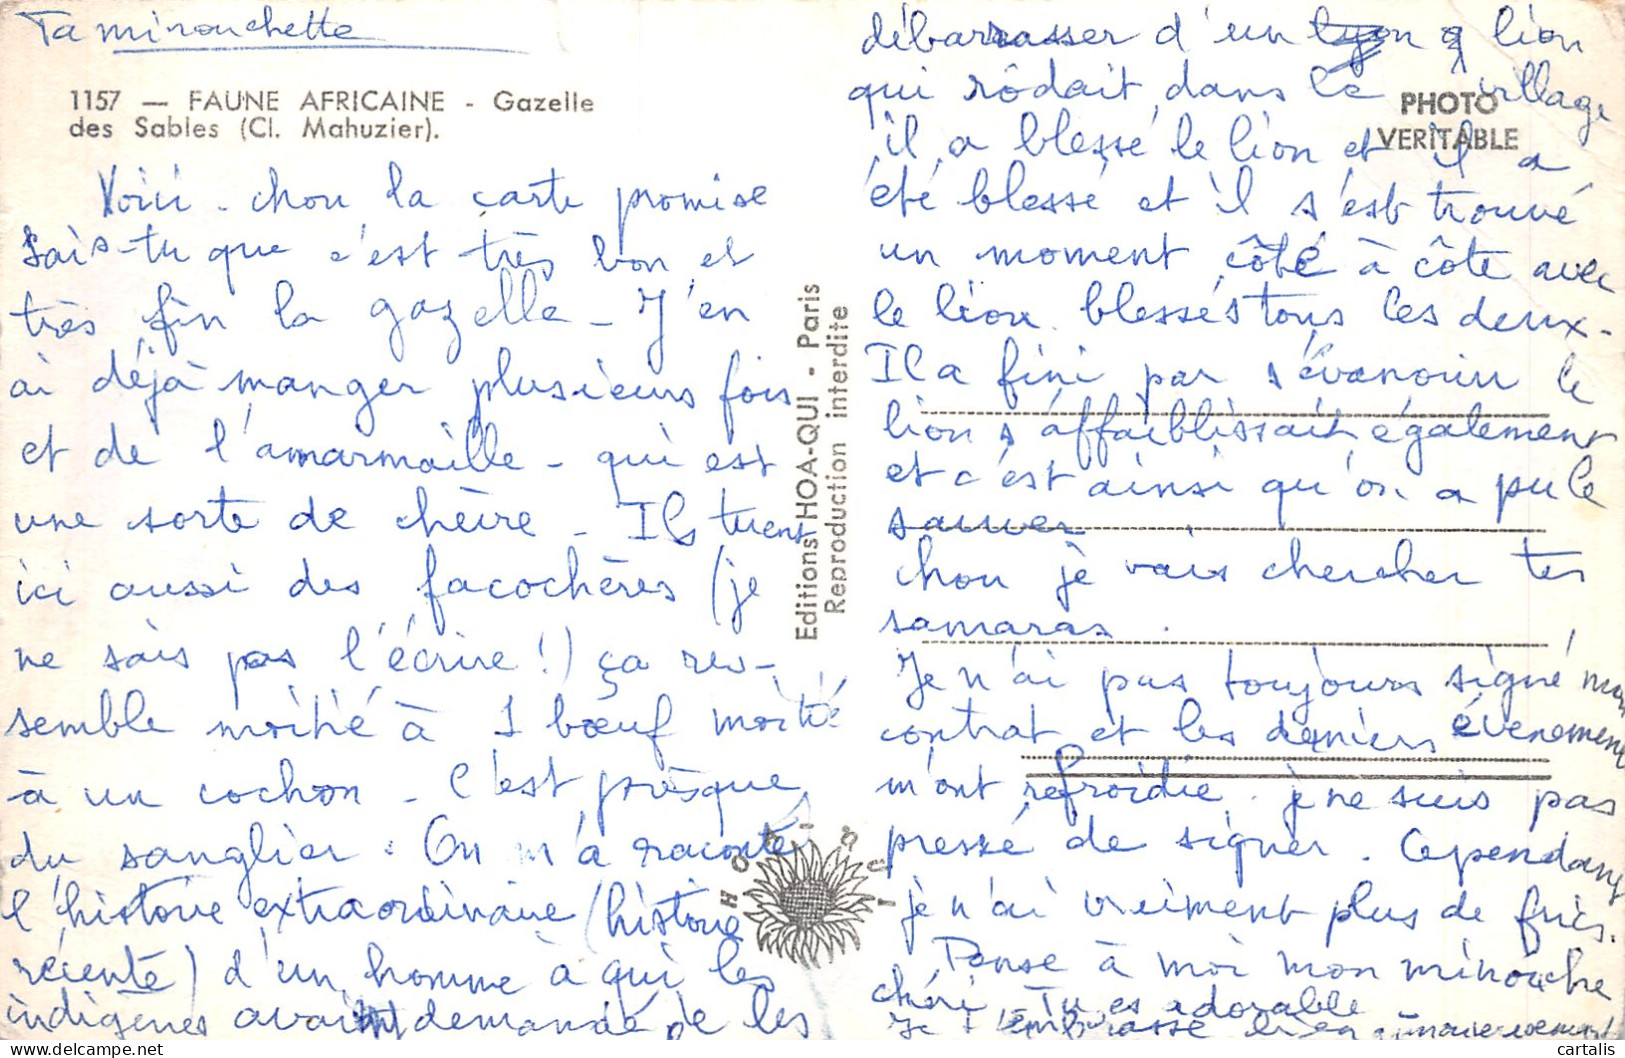 Ta minouchette
1157 — FAUNE AFRICAINE - Gazelle
des Sables (Cl. Mahuzier).
Voici - chou la carte promise
Sais-tu que c'est très bon et
très fin la gazelle - J'en
ai déjà manger plusieurs fois
et de l'amarmaille - qui est
une sorte de chèvre - Ils tuent
ici aussi des facochères (je
ne sais pas l'écrire !) ça res-
semble moitié à 1 bœuf moitié
à un cochon - C'est presque
du sanglier. On m'a raconté
l'histoire extraordinaire (histoire
récente) d'un homme à qui les
indigènes avaient demandé de les
Editions HOA-QUI - Paris
Reproduction interdite
HOA-QUI
PHOTO
VERITABLE
débarrasser d'un lion
qui rôdait dans le village
il a blessé le lion et il a
été blessé et il s'est trouvé
un moment côté à côte avec
le lion blessés tous les deux-
Il a fini par s'évanouir le
lion s'affaiblissait également
et c'est ainsi qu'on a pu le
sauver
chou je vais chercher tes
samaras.
Je n'ai pas toujours signé mon
contrat et les derniers évènements
m'ont refroidie. je ne suis pas
pressé de signer. Cependant
je n'ai vraiment plus de frics.
Pense à moi mon minouche
chéri - Tu es adorable
Je t'embrasse bien
cartalis